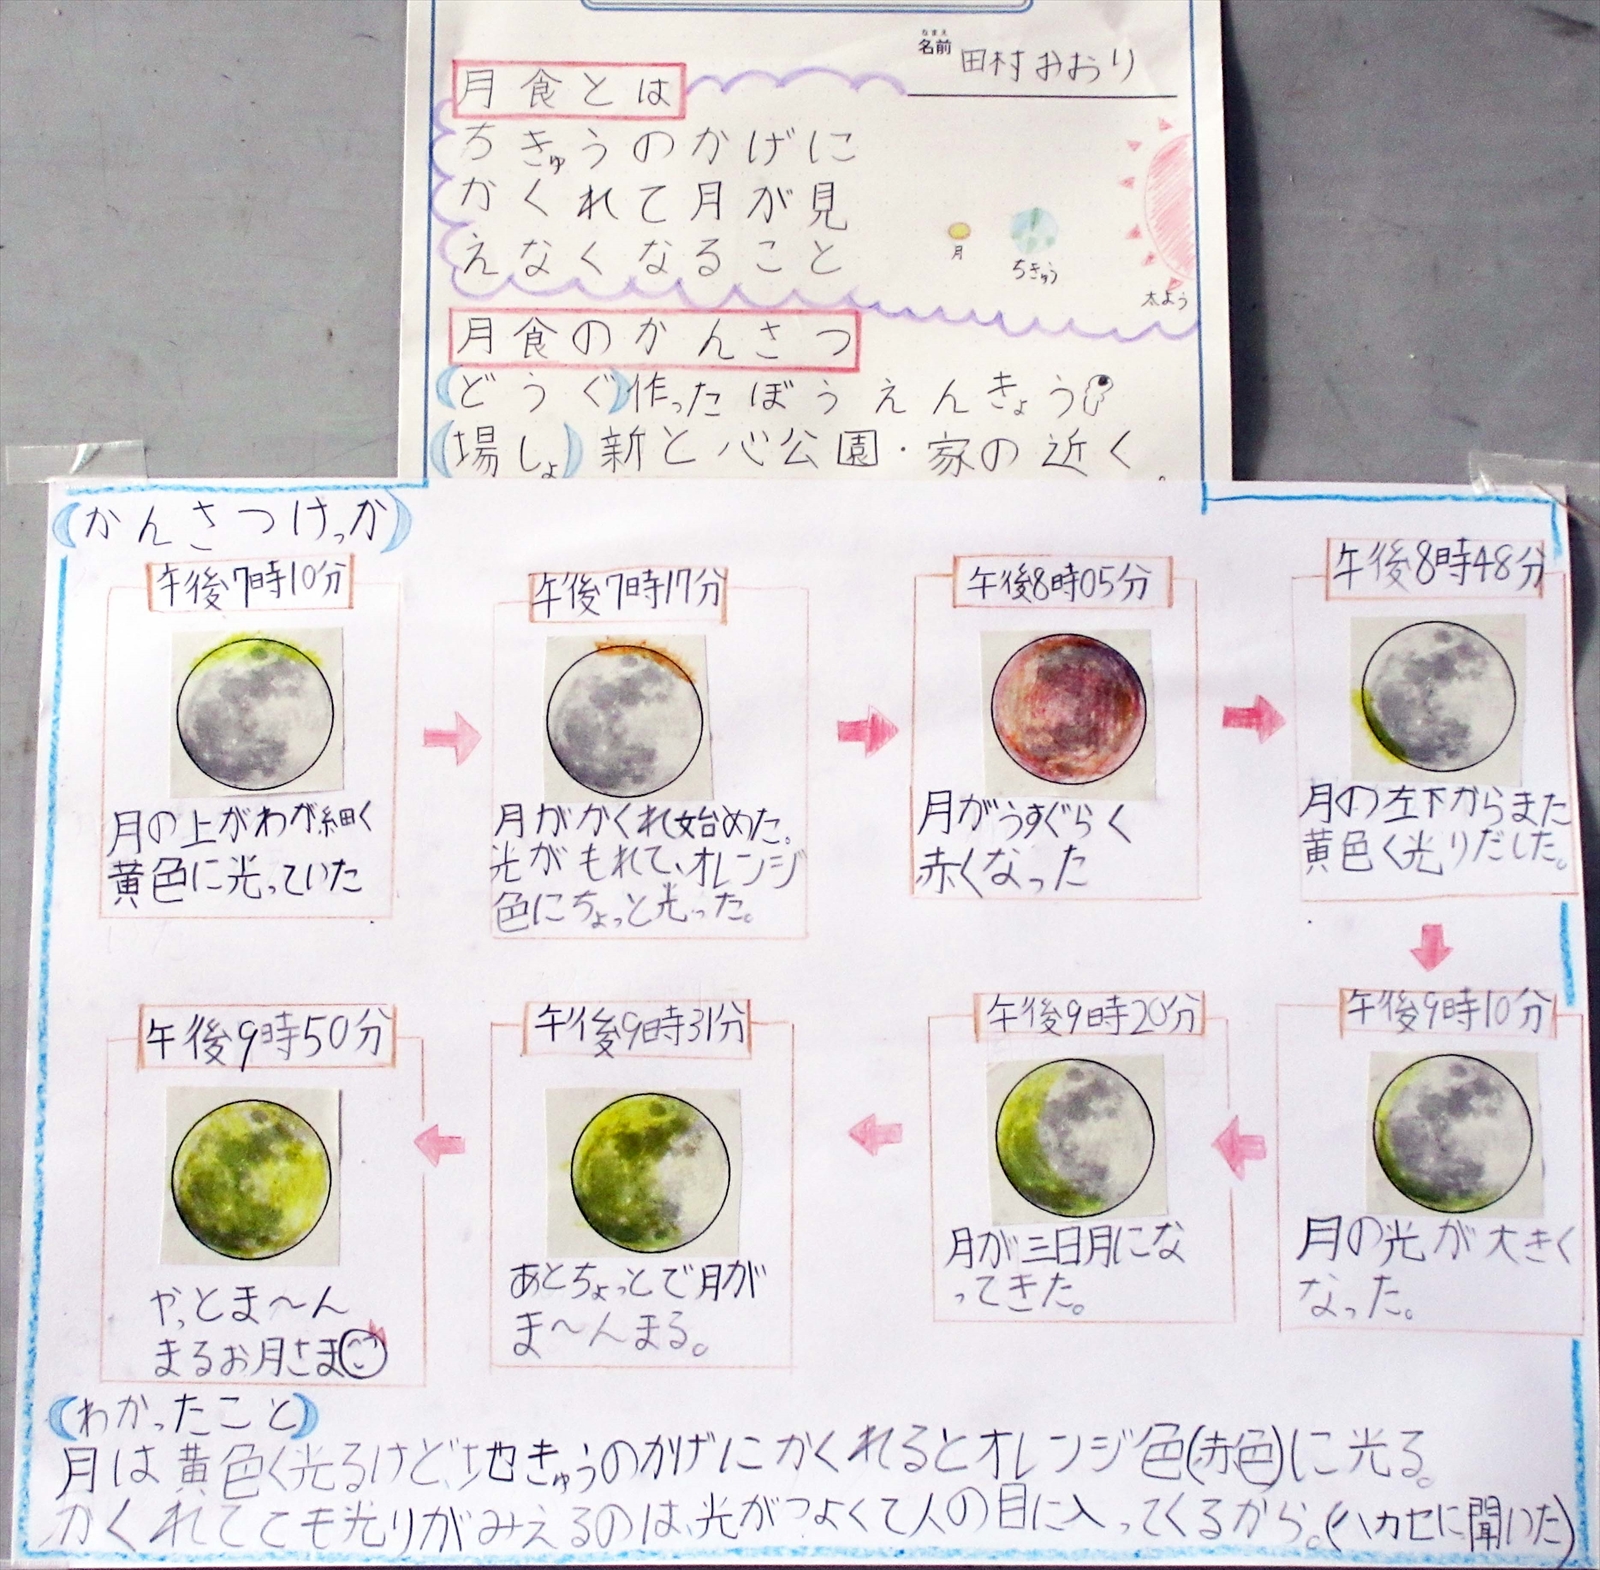 なまえ
名前 田村かおり
月食とは
ちきゅうのかげに
かくれて月が見
えなくなること
月
ちきゅう
太よう
月食のかんさつ
(どうぐ)作ったぼうえんきょう
(場しょ)新と心公園・家の近く
(かんさつけっか)
午後7時10分
月の上がわが細く
黄色に光っていた
午後7時17分
月がかくれ始めた。
光がもれて、オレンジ
色にちょっと光った。
午後8時05分
月がうすぐらく
赤くなった
午後8時48分
月の左下からまた
黄色く光りだした。
午後9時10分
月の光が大きく
なった。
午後9時20分
月が三日月にな
ってきた。
午後9時31分
あとちょっとで月が
ま〜んまる。
午後9時50分
やっとま〜ん
まるお月さま
(わかったこと)
月は黄色く光るけど、地きゅうのかげにかくれるとオレンジ色(赤色)に光る。
かくれてても光りがみえるのは、光がつよくて人の目に入ってくるから。(ハカセに聞いた)